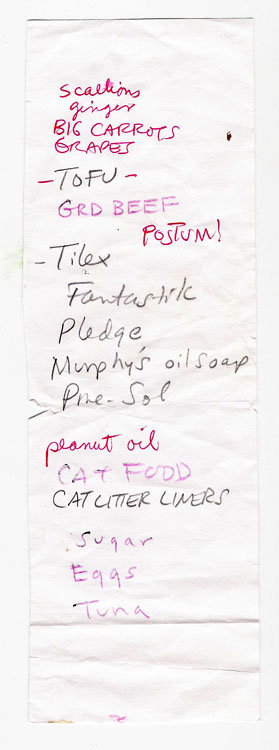 scallions
ginger
BIG CARROTS
GRAPES
- TOFU -
GRD BEEF
POSTUM!
- Tilex
Fantastik
Pledge
Murphy's oil soap
Pine-Sol
peanut oil
CAT FOOD
CAT LITTER LINERS
Sugar
Eggs
Tuna